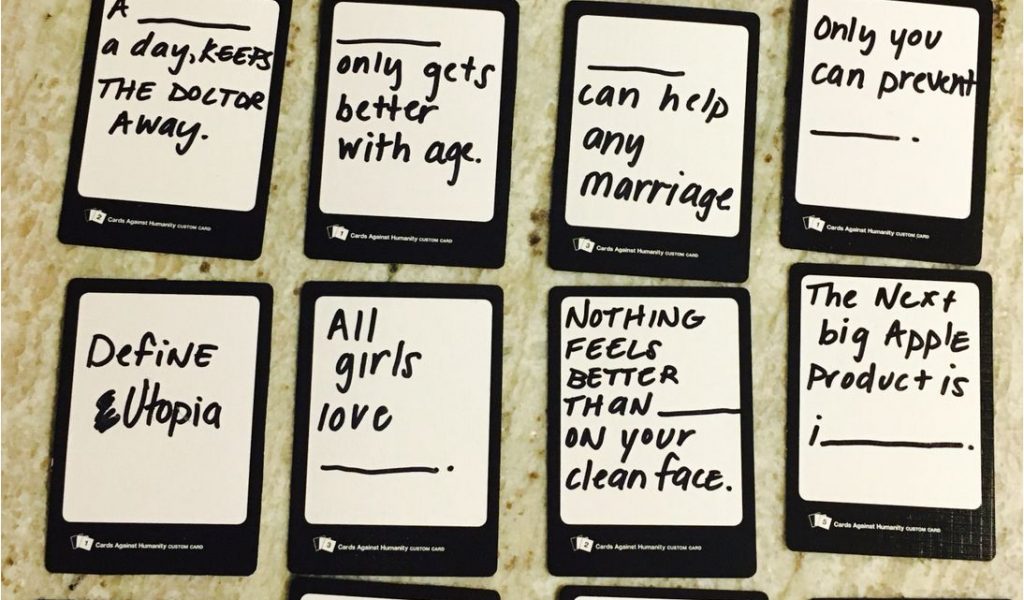 A ______
a day, KEEPS
THE DOCTOR
AWAY.
2 Cards Against Humanity CUSTOM CARD
______
only gets
better
with age.
1 Cards Against Humanity CUSTOM CARD
______
can help
any
marriage
3 Cards Against Humanity CUSTOM CARD
Only you
can prevent
______.
1 Cards Against Humanity CUSTOM CARD
DefiNE
Utopia
1 Cards Against Humanity CUSTOM CARD
All
girls
love
______.
3 Cards Against Humanity CUSTOM CARD
NOTHING
FEELS
BETTER
THAN ______
ON your
clean face.
2 Cards Against Humanity CUSTOM CARD
The Next
big Apple
Product is
i______.
3 Cards Against Humanity CUSTOM CARD